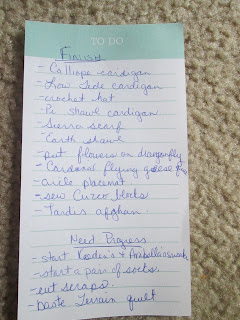 TO DO
Finish
- Calliope cardigan
- Low Tide cardigan
- crochet hat
- Pi shawl cardigan
- Sierra scarf
- Earth shawl
- put flowers on dragonfly
- Cardinal flying geese
- circle placemat
- sew Cuzco blocks
- Tardis afghan.
Need Progress
- start & Arabella's
- start a pair of socks.
- cut scraps.
- baste Terrain quilt